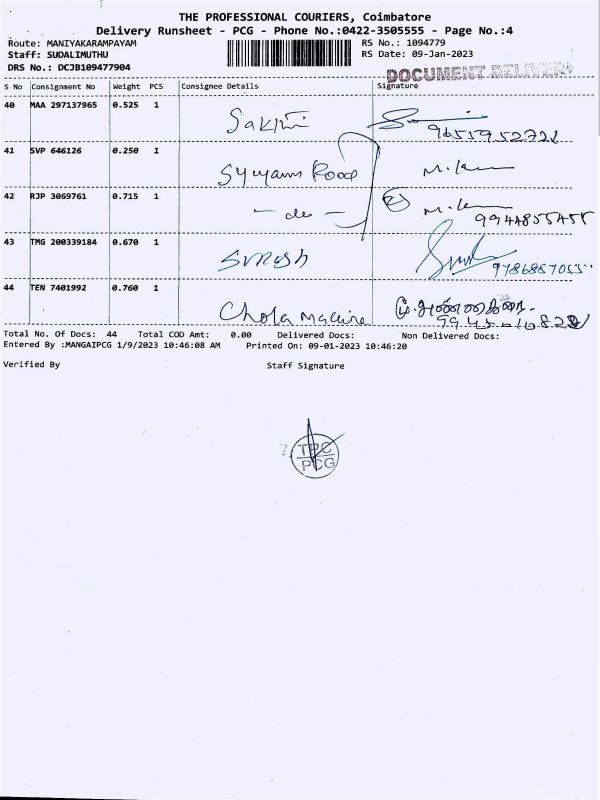 THE PROFESSIONAL COURIERS, Coimbatore
Delivery Runsheet - PCG - Phone No.:0422-3505555 - Page No.:4
Route: MANIYAKARAMPAYAM RS No.: 1094779
Staff: SUDALIMUTHU RS Date: 09-Jan-2023
DRS No.: DCJB109477904
DOCUMENT DELIVERY
S No Consignment No Weight PCS Consignee Details Signature
40 MAA 297137965 0.525 1
Sakthi
9655952722
41 SVP 646126 0.250 1
42 RJP 3069761 0.715 1
- do -
9944855455
43 TMG 200339184 0.670 1
Suresh
9786887055
44 TEN 7401992 0.760 1
Chola Machine
Total No. Of Docs: 44 Total COD Amt: 0.00 Delivered Docs: Non Delivered Docs:
Entered By :MANGAIPCG 1/9/2023 10:46:08 AM Printed On: 09-01-2023 10:46:20
Verified By Staff Signature
TPC
PCG